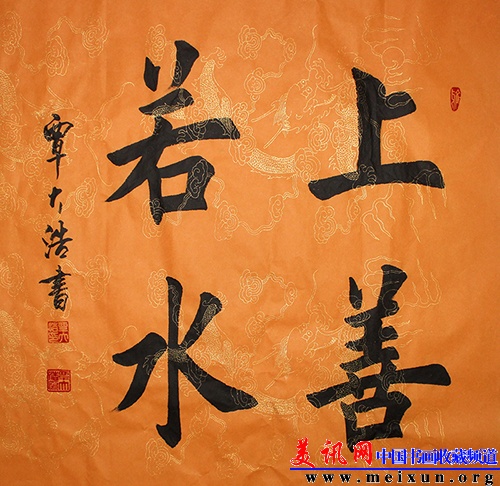 上善
若水
覃大浩書
美讯网 中国书画收藏频道
www.meixun.org